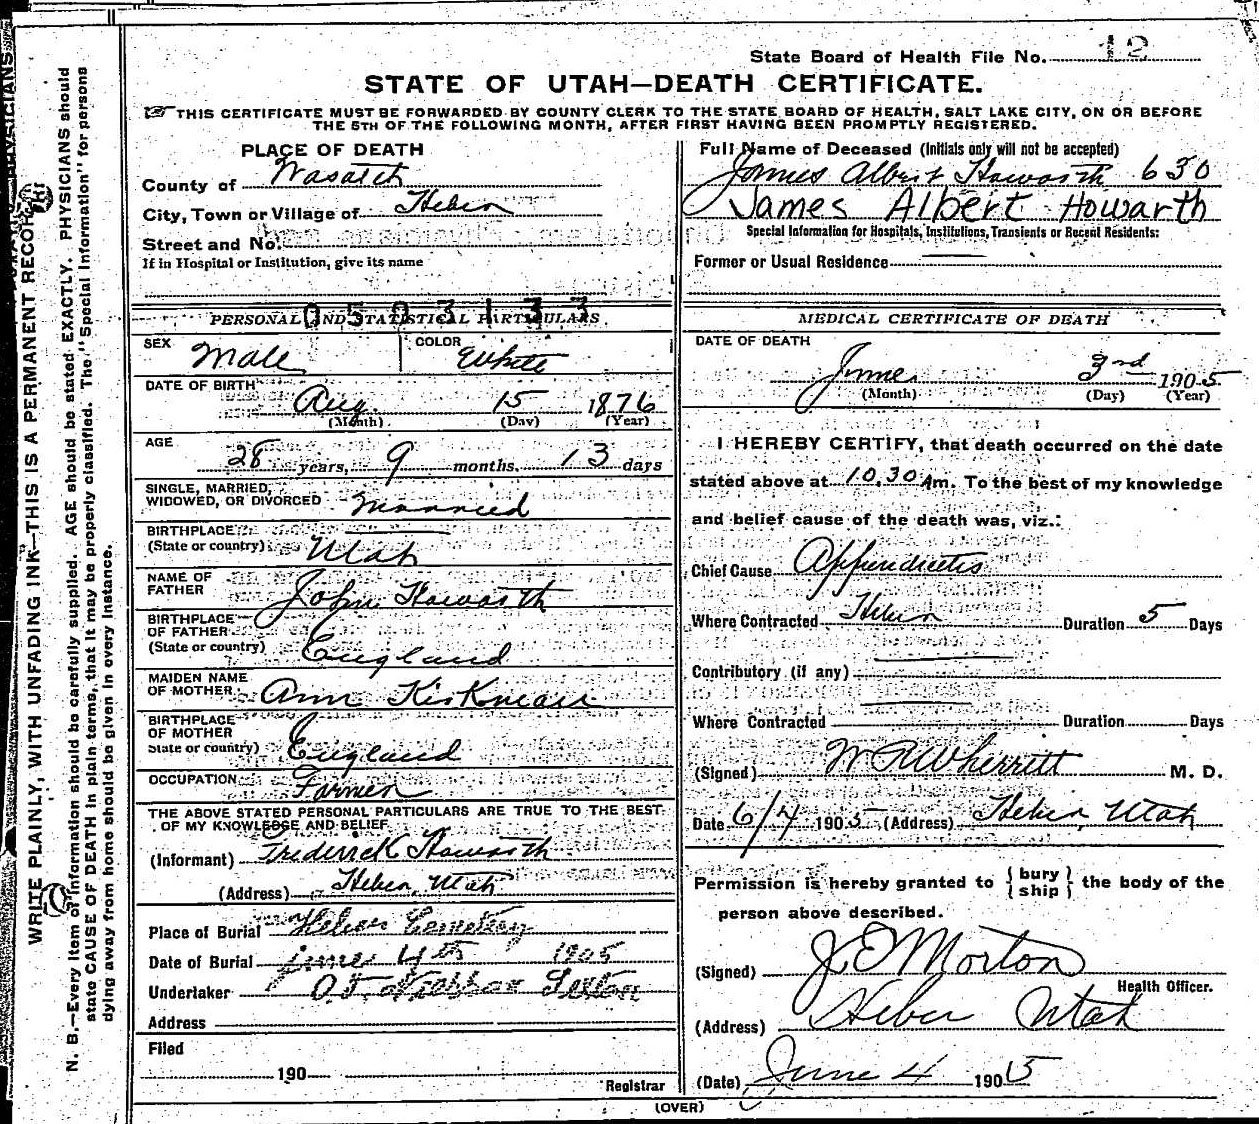 State Board of Health File No. 12
STATE OF UTAH—DEATH CERTIFICATE.
THIS CERTIFICATE MUST BE FORWARDED BY COUNTY CLERK TO THE STATE BOARD OF HEALTH, SALT LAKE CITY, ON OR BEFORE
THE 5TH OF THE FOLLOWING MONTH, AFTER FIRST HAVING BEEN PROMPTLY REGISTERED.
PLACE OF DEATH
County of Wasatch
City, Town or Village of Heber
Street and No.
If in Hospital or Institution, give its name
0503133
PERSONAL AND STATISTICAL PARTICULARS
SEX Male COLOR White
DATE OF BIRTH
Aug 15 1876
(Month) (Day) (Year)
AGE
28 years, 9 months. 13 days
SINGLE, MARRIED,
WIDOWED, OR DIVORCED Married
BIRTHPLACE
(State or country) Utah
NAME OF
FATHER John Howarth
BIRTHPLACE
OF FATHER
(State or country) England
MAIDEN NAME
OF MOTHER Ann
BIRTHPLACE
OF MOTHER
State or country) England
OCCUPATION Farmer
THE ABOVE STATED PERSONAL PARTICULARS ARE TRUE TO THE BEST
OF MY KNOWLEDGE AND BELIEF
(Informant) Frederick Howarth
(Address) Heber, Utah
Place of Burial Heber Cemetery
Date of Burial june 4th 1905
Undertaker Sexton
Address
Filed
190
Registrar
Full Name of Deceased (Initials only will not be accepted)
James Albert Howarth 630
James Albert Howarth
Special Information for Hospitals, Institutions, Transients or Recent Residents:
Former or Usual Residence
MEDICAL CERTIFICATE OF DEATH
DATE OF DEATH
June 3rd 1905
(Month) (Day) (Year)
I HEREBY CERTIFY, that death occurred on the date
stated above at 10.30 Am. To the best of my knowledge
and belief cause of the death was, viz.:
Chief Cause Appendicitis
Where Contracted Heber Duration 5 Days
Contributory (if any)
Where Contracted Duration Days
(Signed) W R Wherritt M. D.
Date 6/4 1905 (Address) Heber, Utah
Permission is hereby granted to {bury
ship} the body of the
person above described.
(Signed) J E Morton
Health Officer.
(Address) Heber Utah
(Date) June 4 1905
(OVER)
WRITE PLAINLY, WITH UNFADING INK—THIS IS A PERMANENT RECORD
N. B.—Every item of information should be carefully supplied. AGE should be stated EXACTLY. PHYSICIANS should
state CAUSE OF DEATH in plain terms, that it may be properly classified. The "Special Information" for persons
dying away from home should be given in every instance.